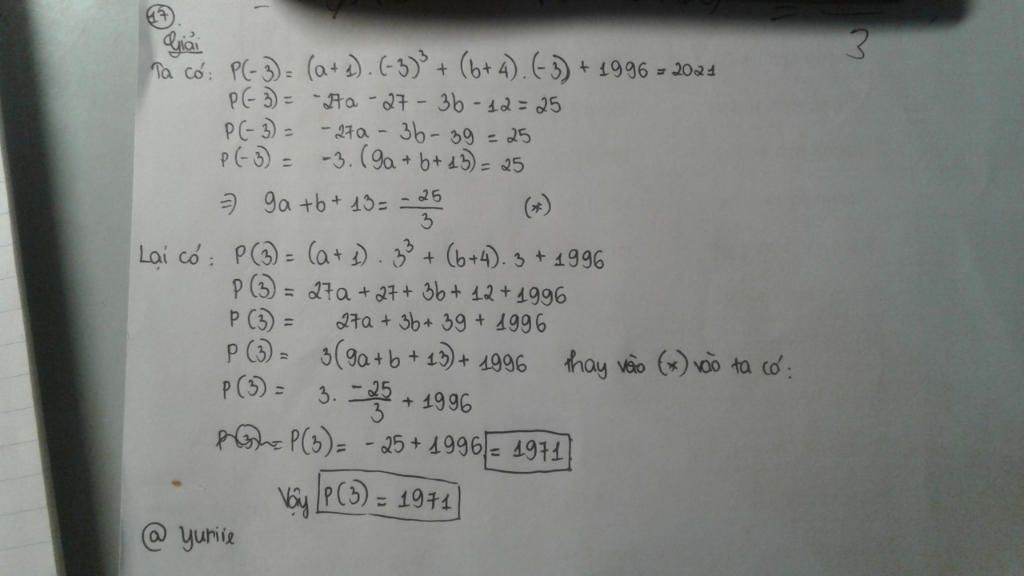 17.
Giải
Ta có: P(-3) = (a+1).(-3)³ + (b+4).(-3) + 1996 = 2021
P(-3) = -27a - 27 - 3b - 12 = 25
P(-3) = -27a - 3b - 39 = 25
P(-3) = -3.(9a+b+13) = 25
⇒ 9a+b+13 = -25/3 (*)
Lại có: P(3) = (a+1).3³ + (b+4).3 + 1996
P(3) = 27a + 27 + 3b + 12 + 1996
P(3) = 27a + 3b + 39 + 1996
P(3) = 3(9a+b+13) + 1996 Thay vào (*) vào ta có:
P(3) = 3. -25/3 + 1996
P(3) = -25 + 1996 = 1971
Vậy P(3) = 1971
@ yuriie
3